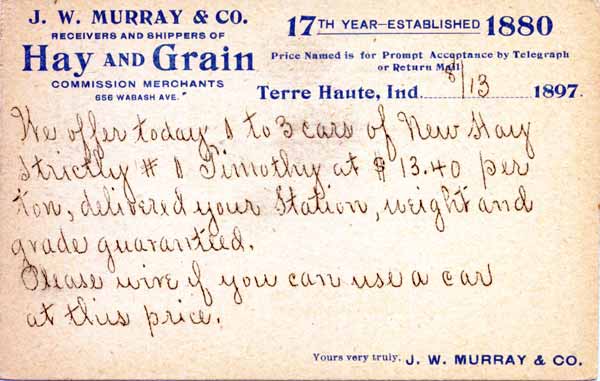 J. W. MURRAY & CO.
RECEIVERS AND SHIPPERS OF
Hay AND Grain
COMMISSION MERCHANTS
656 WABASH AVE.
17TH YEAR—ESTABLISHED 1880
Price Named is for Prompt Acceptance by Telegraph
or Return Mail
Terre Haute, Ind. 8/13 1897.
We offer today 1 to 3 cars of New Hay
Strictly # 1 Timothy at $13.40 per
ton, delivered your Station, weight and
grade guaranteed.
Please wire if you can use a car
at this price.
Yours very truly, J. W. MURRAY & CO.